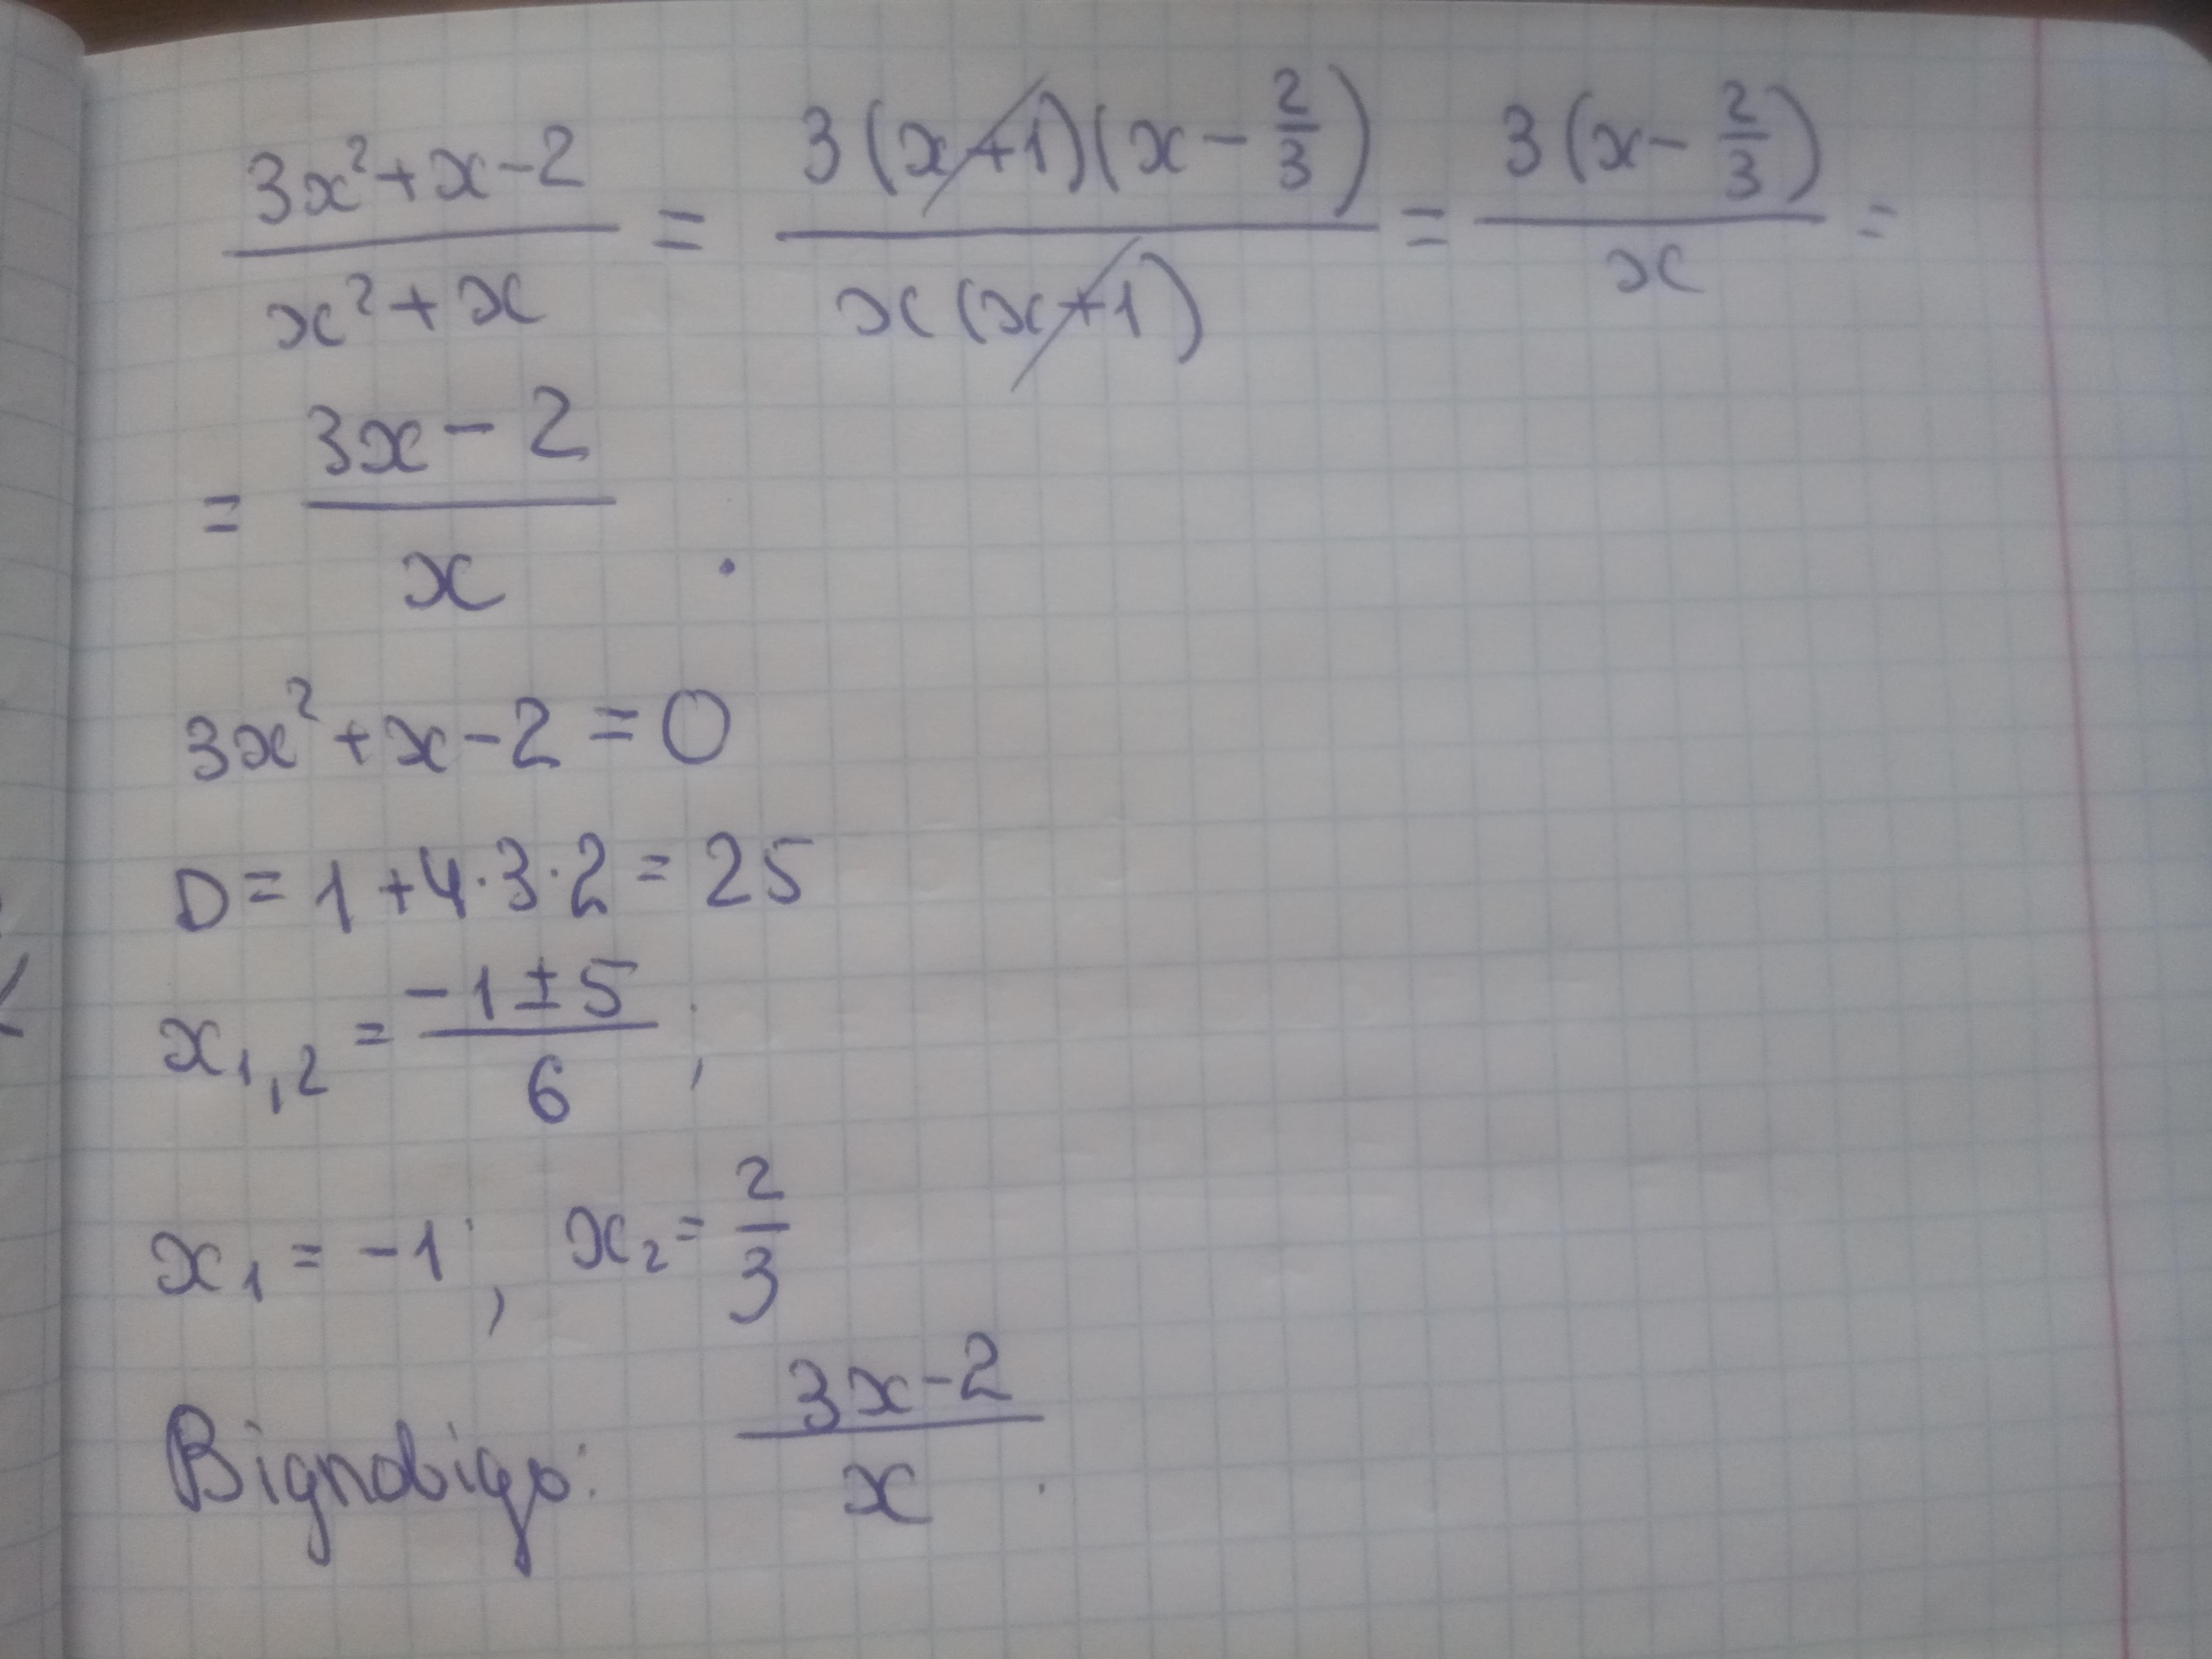 (3x²+x-2)/(x²+x) = (3(x+1)(x-2/3))/(x(x+1)) = (3(x-2/3))/x =
= (3x-2)/x .
3x²+x-2=0
D=1+4·3·2=25
x₁,₂ = (-1±5)/6 ;
x₁ = -1; x₂ = 2/3
Відповідь: (3x-2)/x .